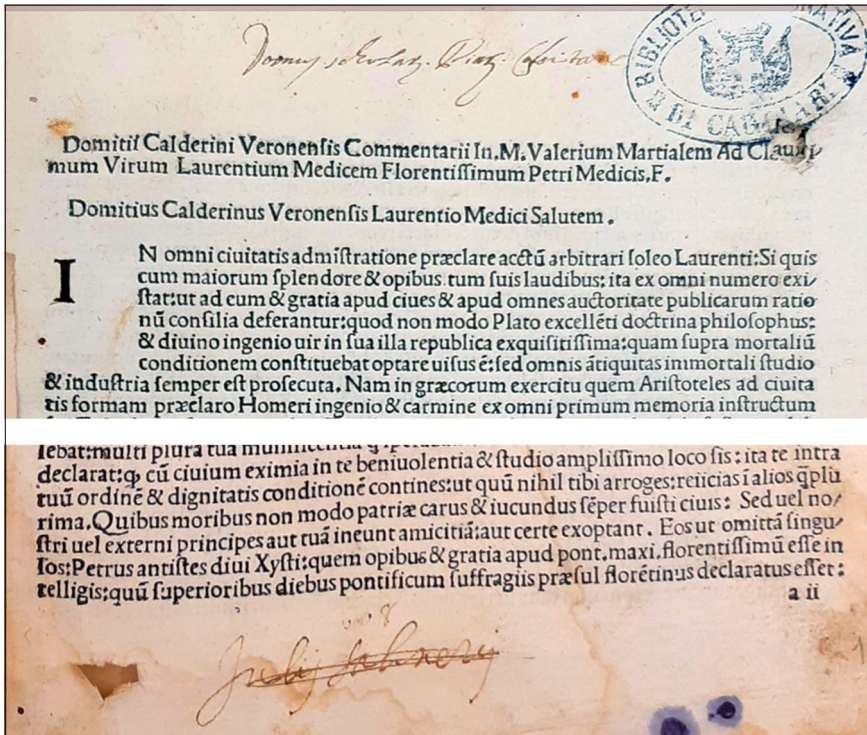 BIBLIOTE RATIVA
DI CAGLIARI
Domitii Calderini Veronenſis Commentarii In.M.Valerium Martialem Ad Clariſſi⸗
mum Virum Laurentium Medicem Florentiſſimum Petri Medicis.F.
Domitius Calderinus Veronenſis Laurentio Medici Salutem.
IN omni ciuitatis admīſtratione præclare acctū arbitrari ſoleo Laurenti:Si quis
cum maiorum ſplendore & opibus tum ſuis laudibus: ita ex omni numero exi⸗
ſtat:ut ad eum & gratia apud ciues & apud omnes auctoritate publicarum ratio
nū conſilia deferantur:quod non modo Plato excellēti doctrina philoſophus:
& diuino ingenio uir in ſua illa republica exquiſitiſſima:quam ſupra mortaliū
conditionem conſtituebat optare uiſus ē:ſed omnis ātiquitas immortali ſtudio
& induſtria ſemper eſt proſecuta. Nam in græcorum exercitu quem Ariſtoteles ad ciuita
tis formam præclaro Homeri ingenio & carmine ex omni primum memoria inſtructum
lebat:multi plura tua
declarat:ꝙ cū ciuium eximia in te beniuolentia & ſtudio ampliſſimo loco ſis: ita te intra
tuū ordinē & dignitatis conditionē contines:ut quū nihil tibi arroges:reiicias ī alios q̄plu
rima. Quibus moribus non modo patriæ carus & iucundus ſēper fuiſti ciuis: Sed uel no⸗
ſtri uel externi principes aut tuā ineunt amicitiā:aut certe exoptant. Eos ut omittā ſingu⸗
los:Petrus antiſtes diui Xyſti:quem opibus & gratia apud pont.maxi.florentiſſimū eſſe in
telligis:quū ſuperioribus diebus pontificum ſuffragiis præſul florētinus declaratus eſſet:
a ii